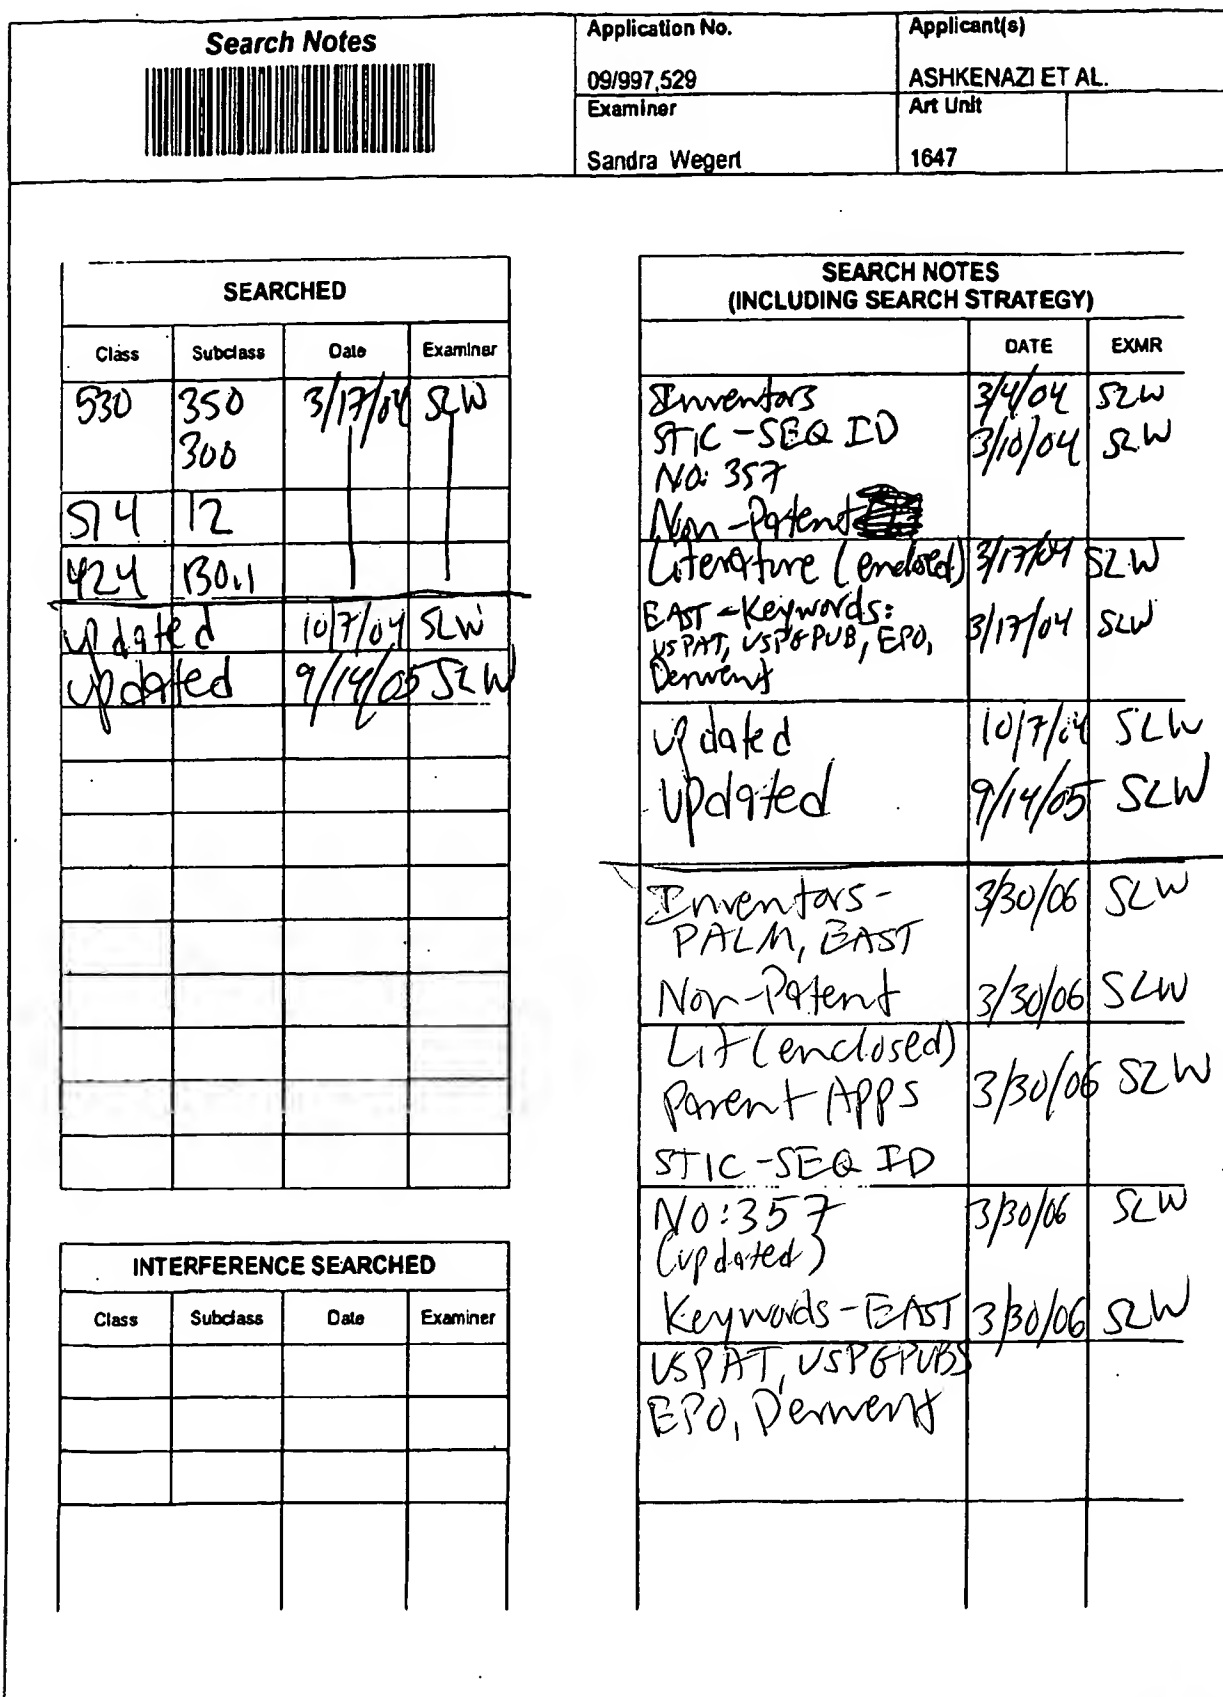 Search Notes
Application No.
Applicant(s)
09/997,529
ASHKENAZI ET AL.
Examiner
Art Unit
Sandra Wegert
1647
SEARCHED
Class Subclass Date Examiner
530 350 3/17/04 SLW
300
514 12
424 130.1
updated 10/7/04 SLW
updated 9/14/05 SLW
INTERFERENCE SEARCHED
Class Subclass Date Examiner
SEARCH NOTES
(INCLUDING SEARCH STRATEGY)
DATE EXMR
Inventors 3/4/04 SLW
STIC-SEQ ID 3/10/04 SLW
NO: 357
Non-Patent
Literature (enclosed) 3/17/04 SLW
EAST-Keywords: 3/17/04 SLW
USPAT, USPGPUB, EPO,
Derwent
updated 10/7/04 SLW
updated 9/14/05 SLW
Inventors- 3/30/06 SLW
PALM, EAST
Non-Patent 3/30/06 SLW
Lit (enclosed)
Parent Apps 3/30/06 SLW
STIC-SEQ ID
NO:357 3/30/06 SLW
(updated)
Keywords-EAST 3/30/06 SLW
USPAT, USPGPUBS
EPO, Derwent